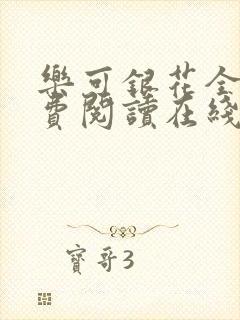 樂可銀花全
費閱讀在綫
寶哥3